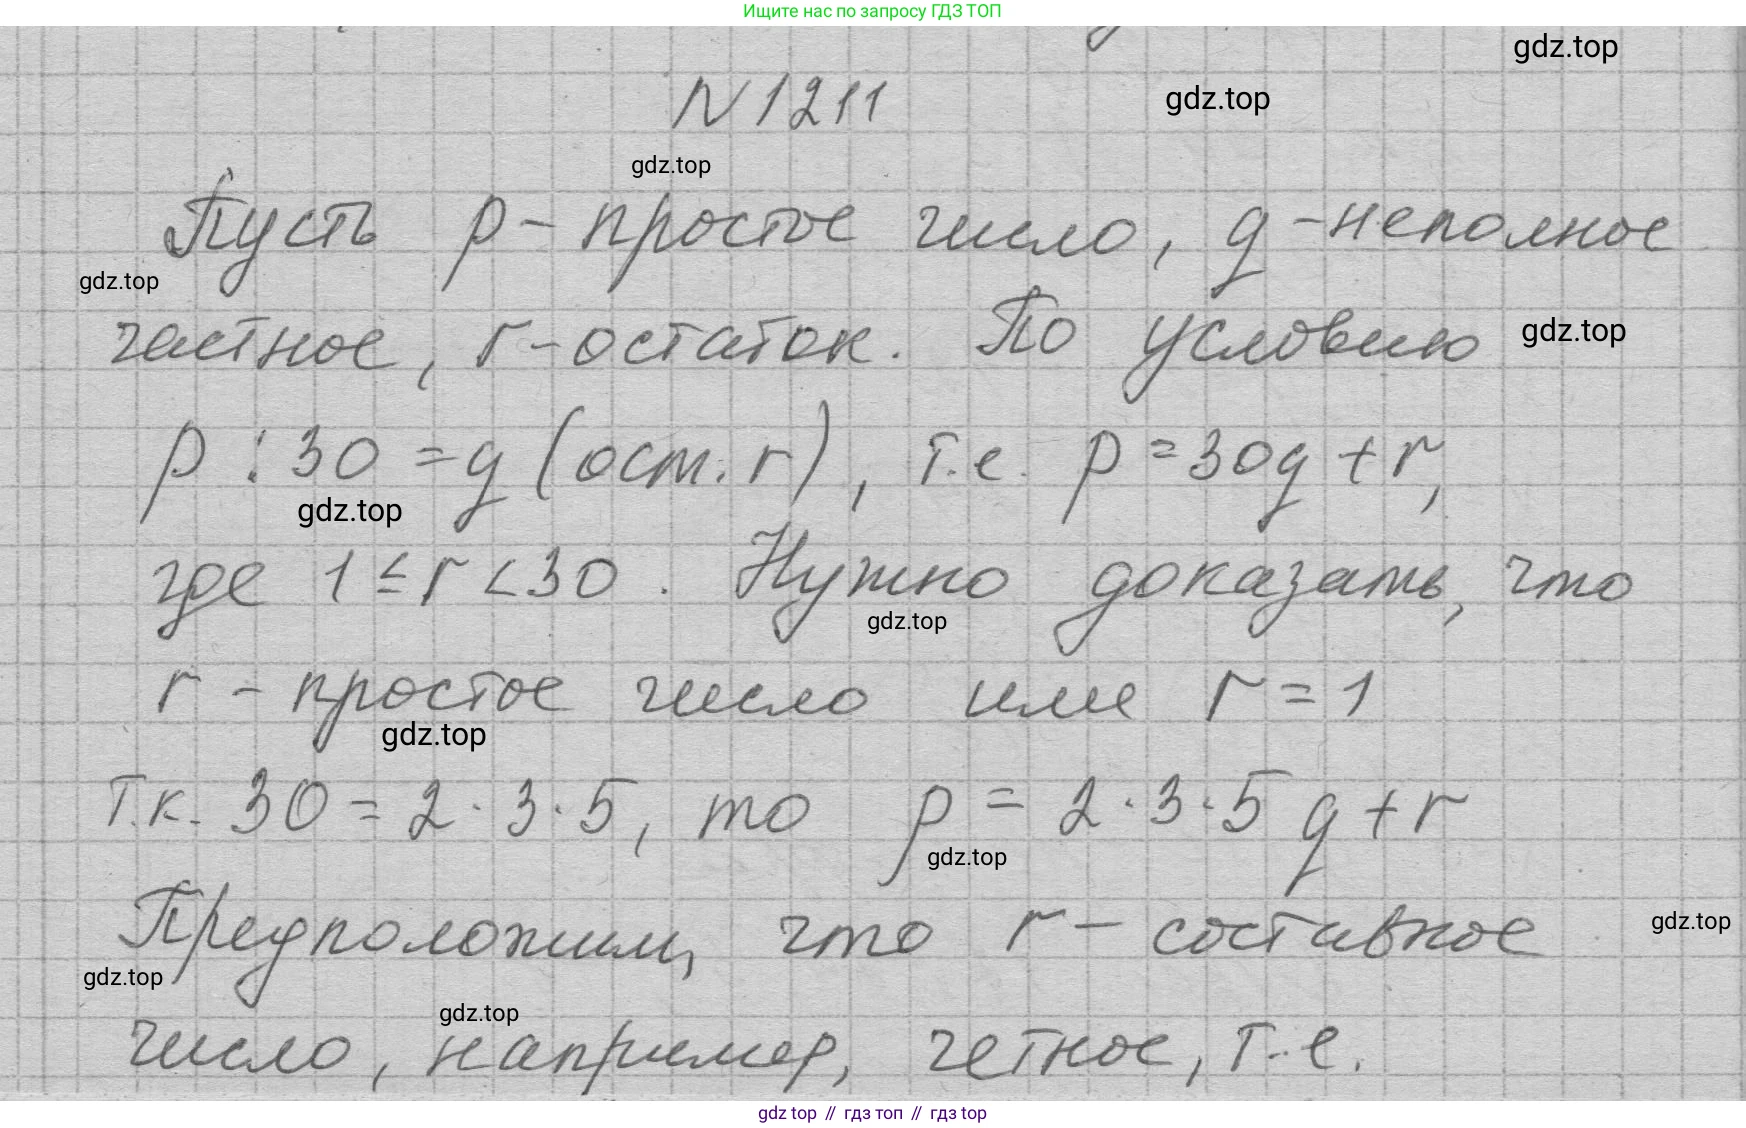 Ищите нас по запросу ГДЗ ТОП
gdz.top
N 1211
gdz.top
gdz.top
Пусть p - простое число, q - неполное
gdz.top
частное, r - остаток. По условию
gdz.top
p : 30 = q (ост. r), т.е. p = 30q + r,
gdz.top
где 1 ≤ r < 30. Нужно доказать, что
gdz.top
r - простое число или r = 1
gdz.top
Т.к. 30 = 2 · 3 · 5, то p = 2 · 3 · 5 q + r
gdz.top
Предположим, что r - составное
gdz.top
gdz.top
число, например, четное, т.е.
gdz.top
gdz top // гдз топ // гдз top